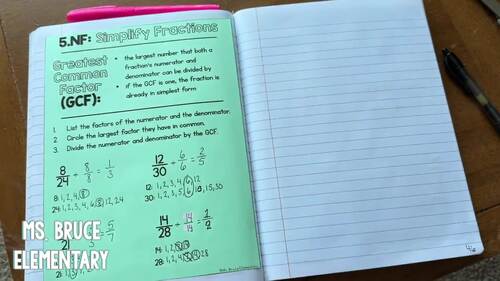 5.NF: Simplify Fractions
Greatest
Common
Factor
(GCF):
• the largest number that both a
fraction's numerator and
denominator can be divided by
• if the GCF is one, the fraction is
already in simplest form
1. List the factors of the numerator and the denominator.
2. Circle the largest factor they have in common.
3. Divide the numerator and denominator by the GCF.
8/24 ÷ 8/8 = 1/3
8: 1, 2, 4, 8
24: 1, 2, 3, 4, 6, 8, 12, 24
12/30 ÷ 6/6 = 2/5
12: 1, 2, 3, 4, 6, 12
30: 1, 2, 3, 5, 6, 10, 15, 30
21
3
5/7
14/28 ÷ 14/14 = 1/2
14: 1, 2,
28: 1, 2, 4, 28
MS. BRUCE
ELEMENTARY